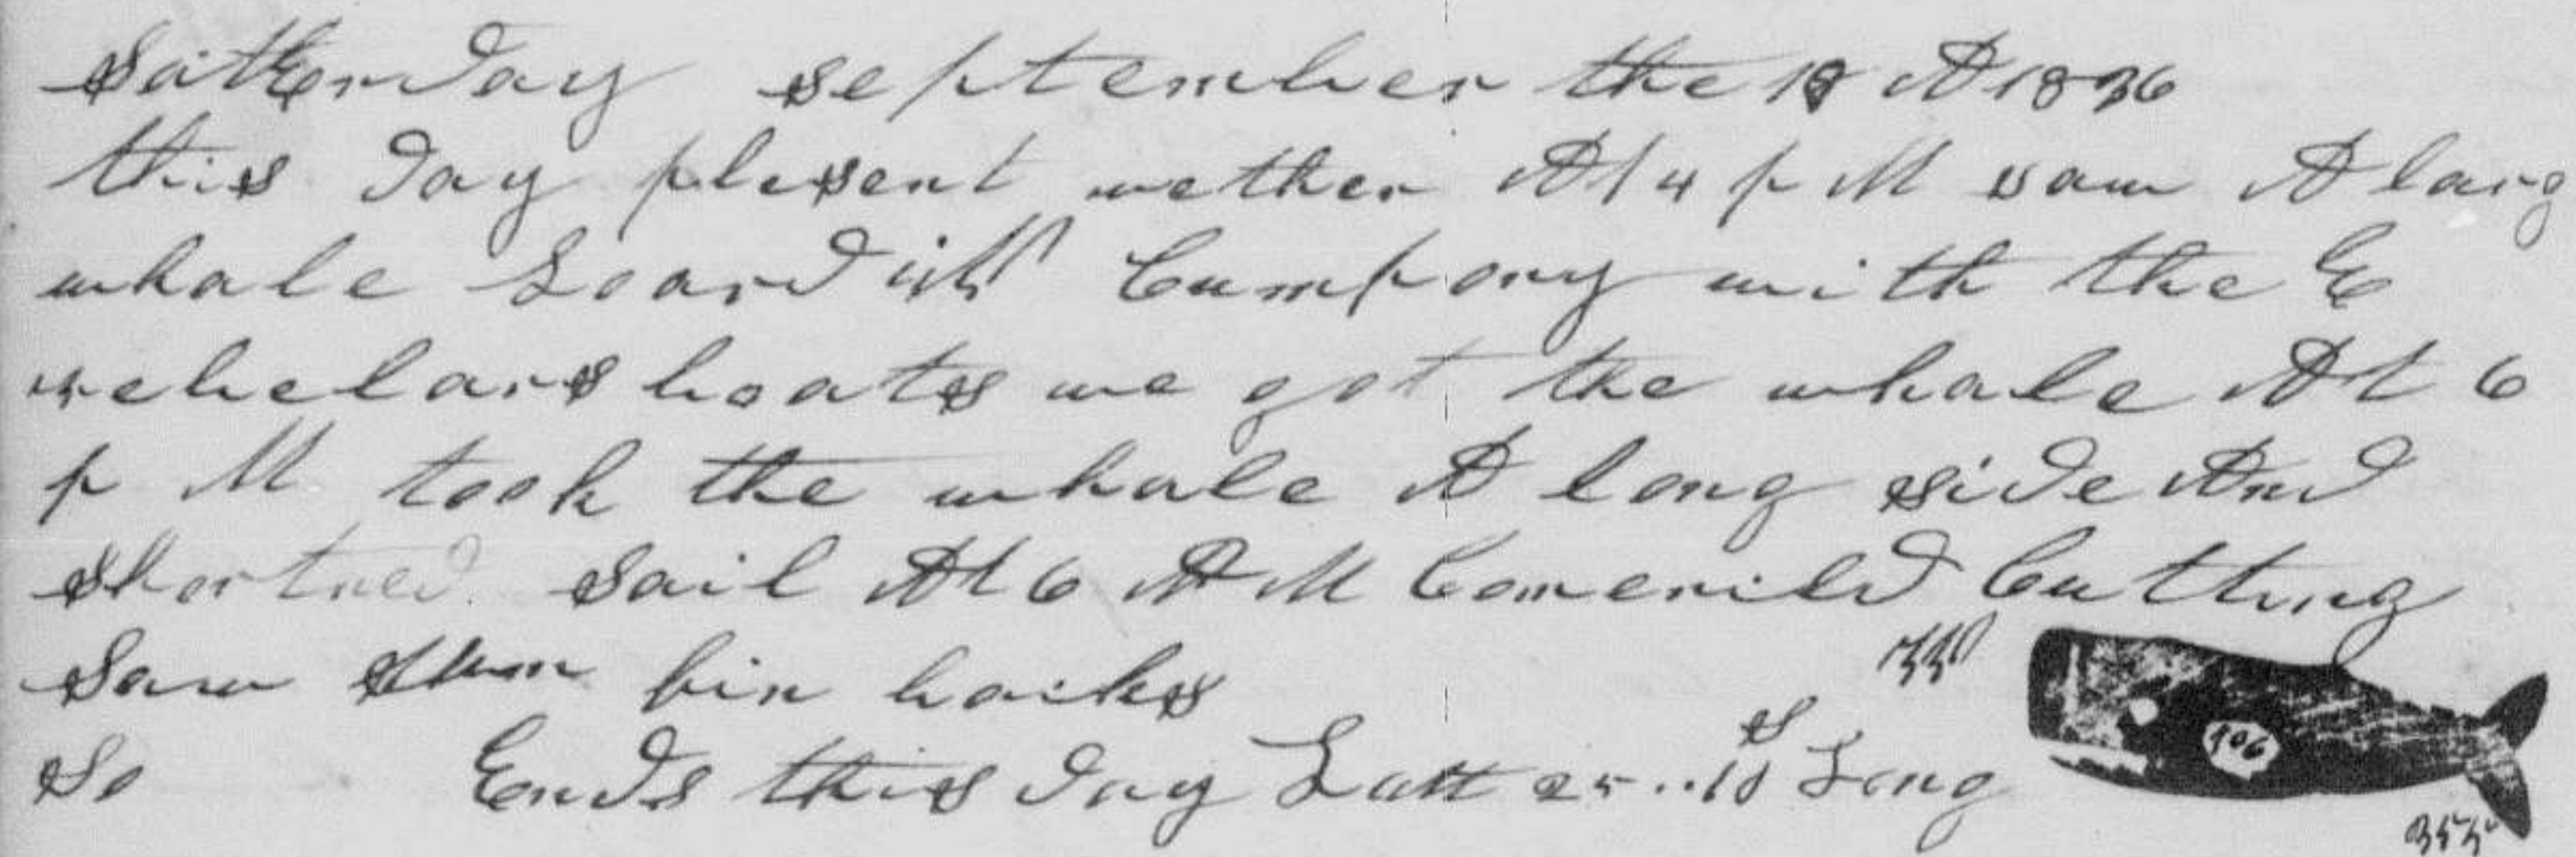 Satterday september the 18 A 1836
this day plesent wether At 4 p M saw A larg
whale Loard Cumpany with the E
wehelars boats we got the whale At 6
p M took the whale A long side And
shortned sail At 6 A M Comencild Cutting
Saw sum fin backs
So Ends this day Latt 25..10 S Long
106